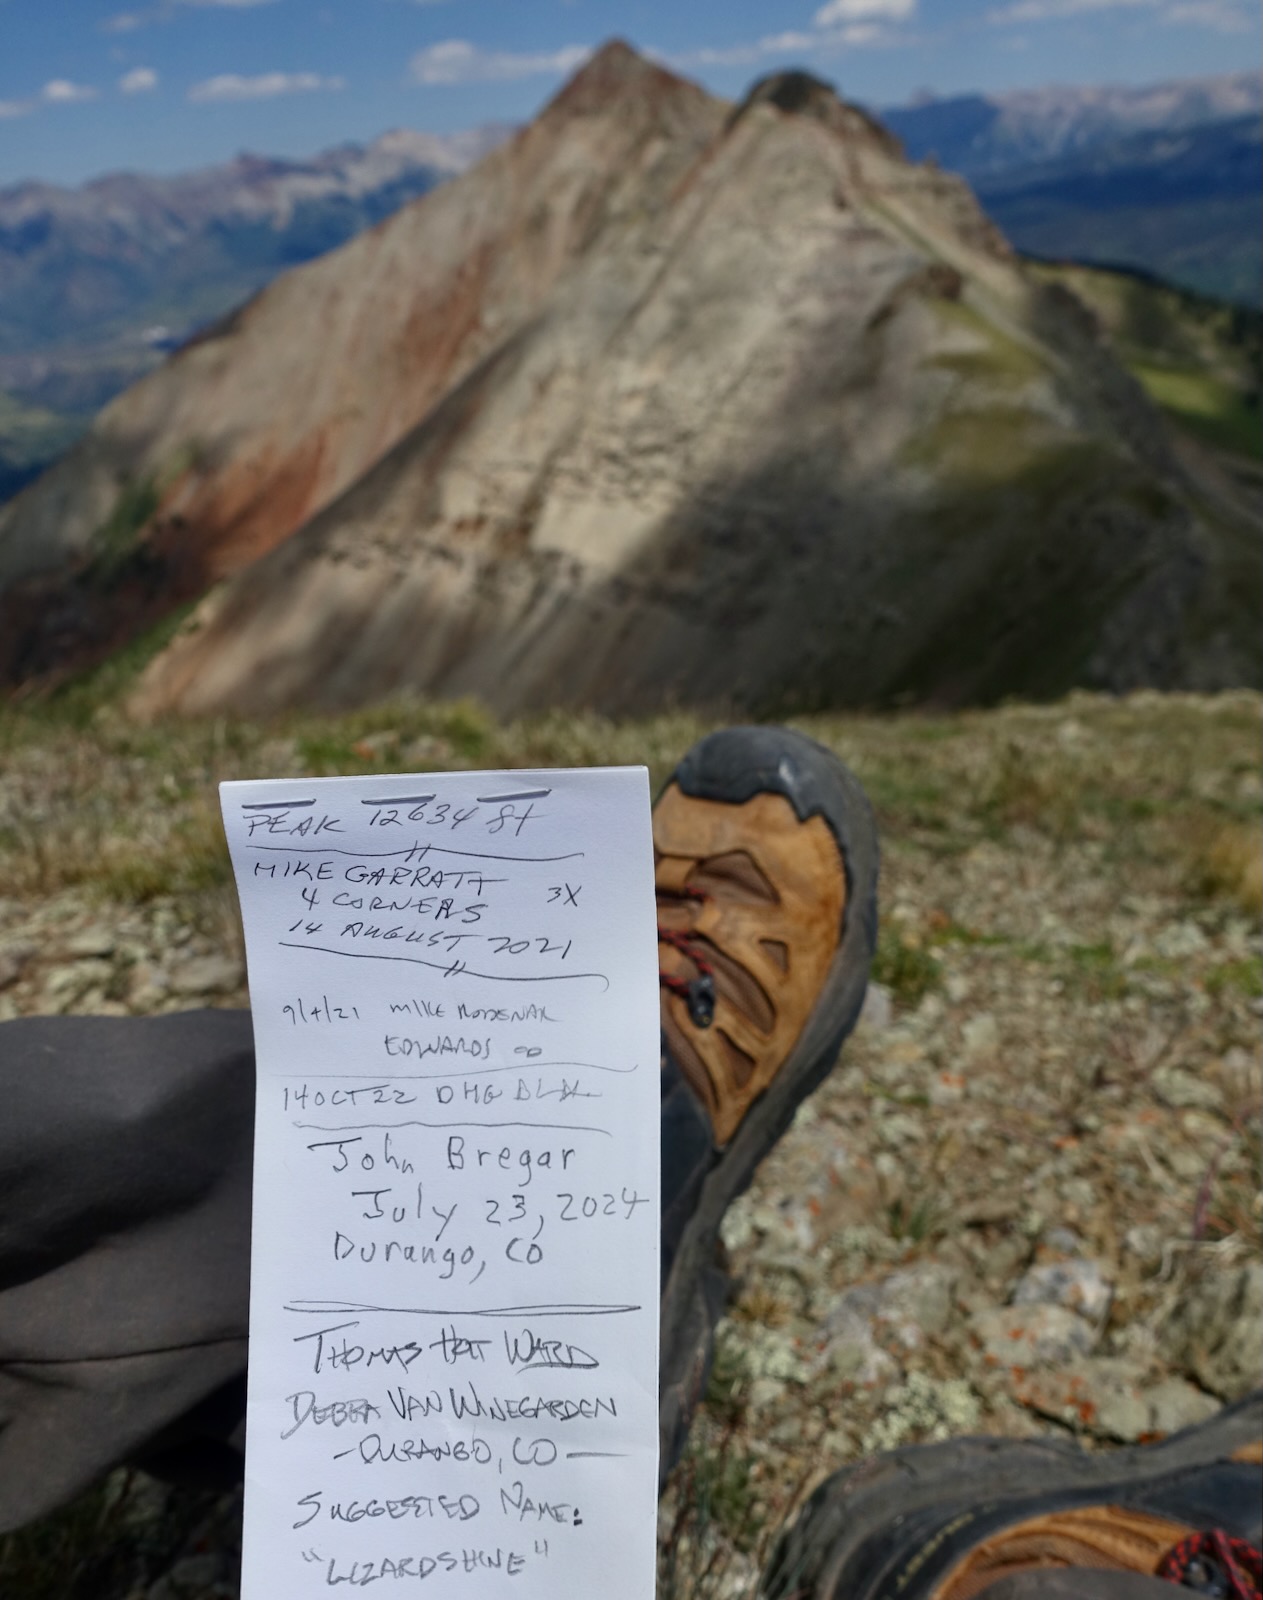 PEAK 12634 ft
MIKE GARRATT
4 CORNERS 3X
14 AUGUST 2021
9/4/21 MIKE
EDWARDS CO
14 OCT 22 DHG
John Bregar
July 23, 2024
Durango, CO
THOMAS HOLT WARD
DEBRA VAN WINEGARDEN
- DURANGO, CO -
SUGGESTED NAME:
"LIZARDSHINE"